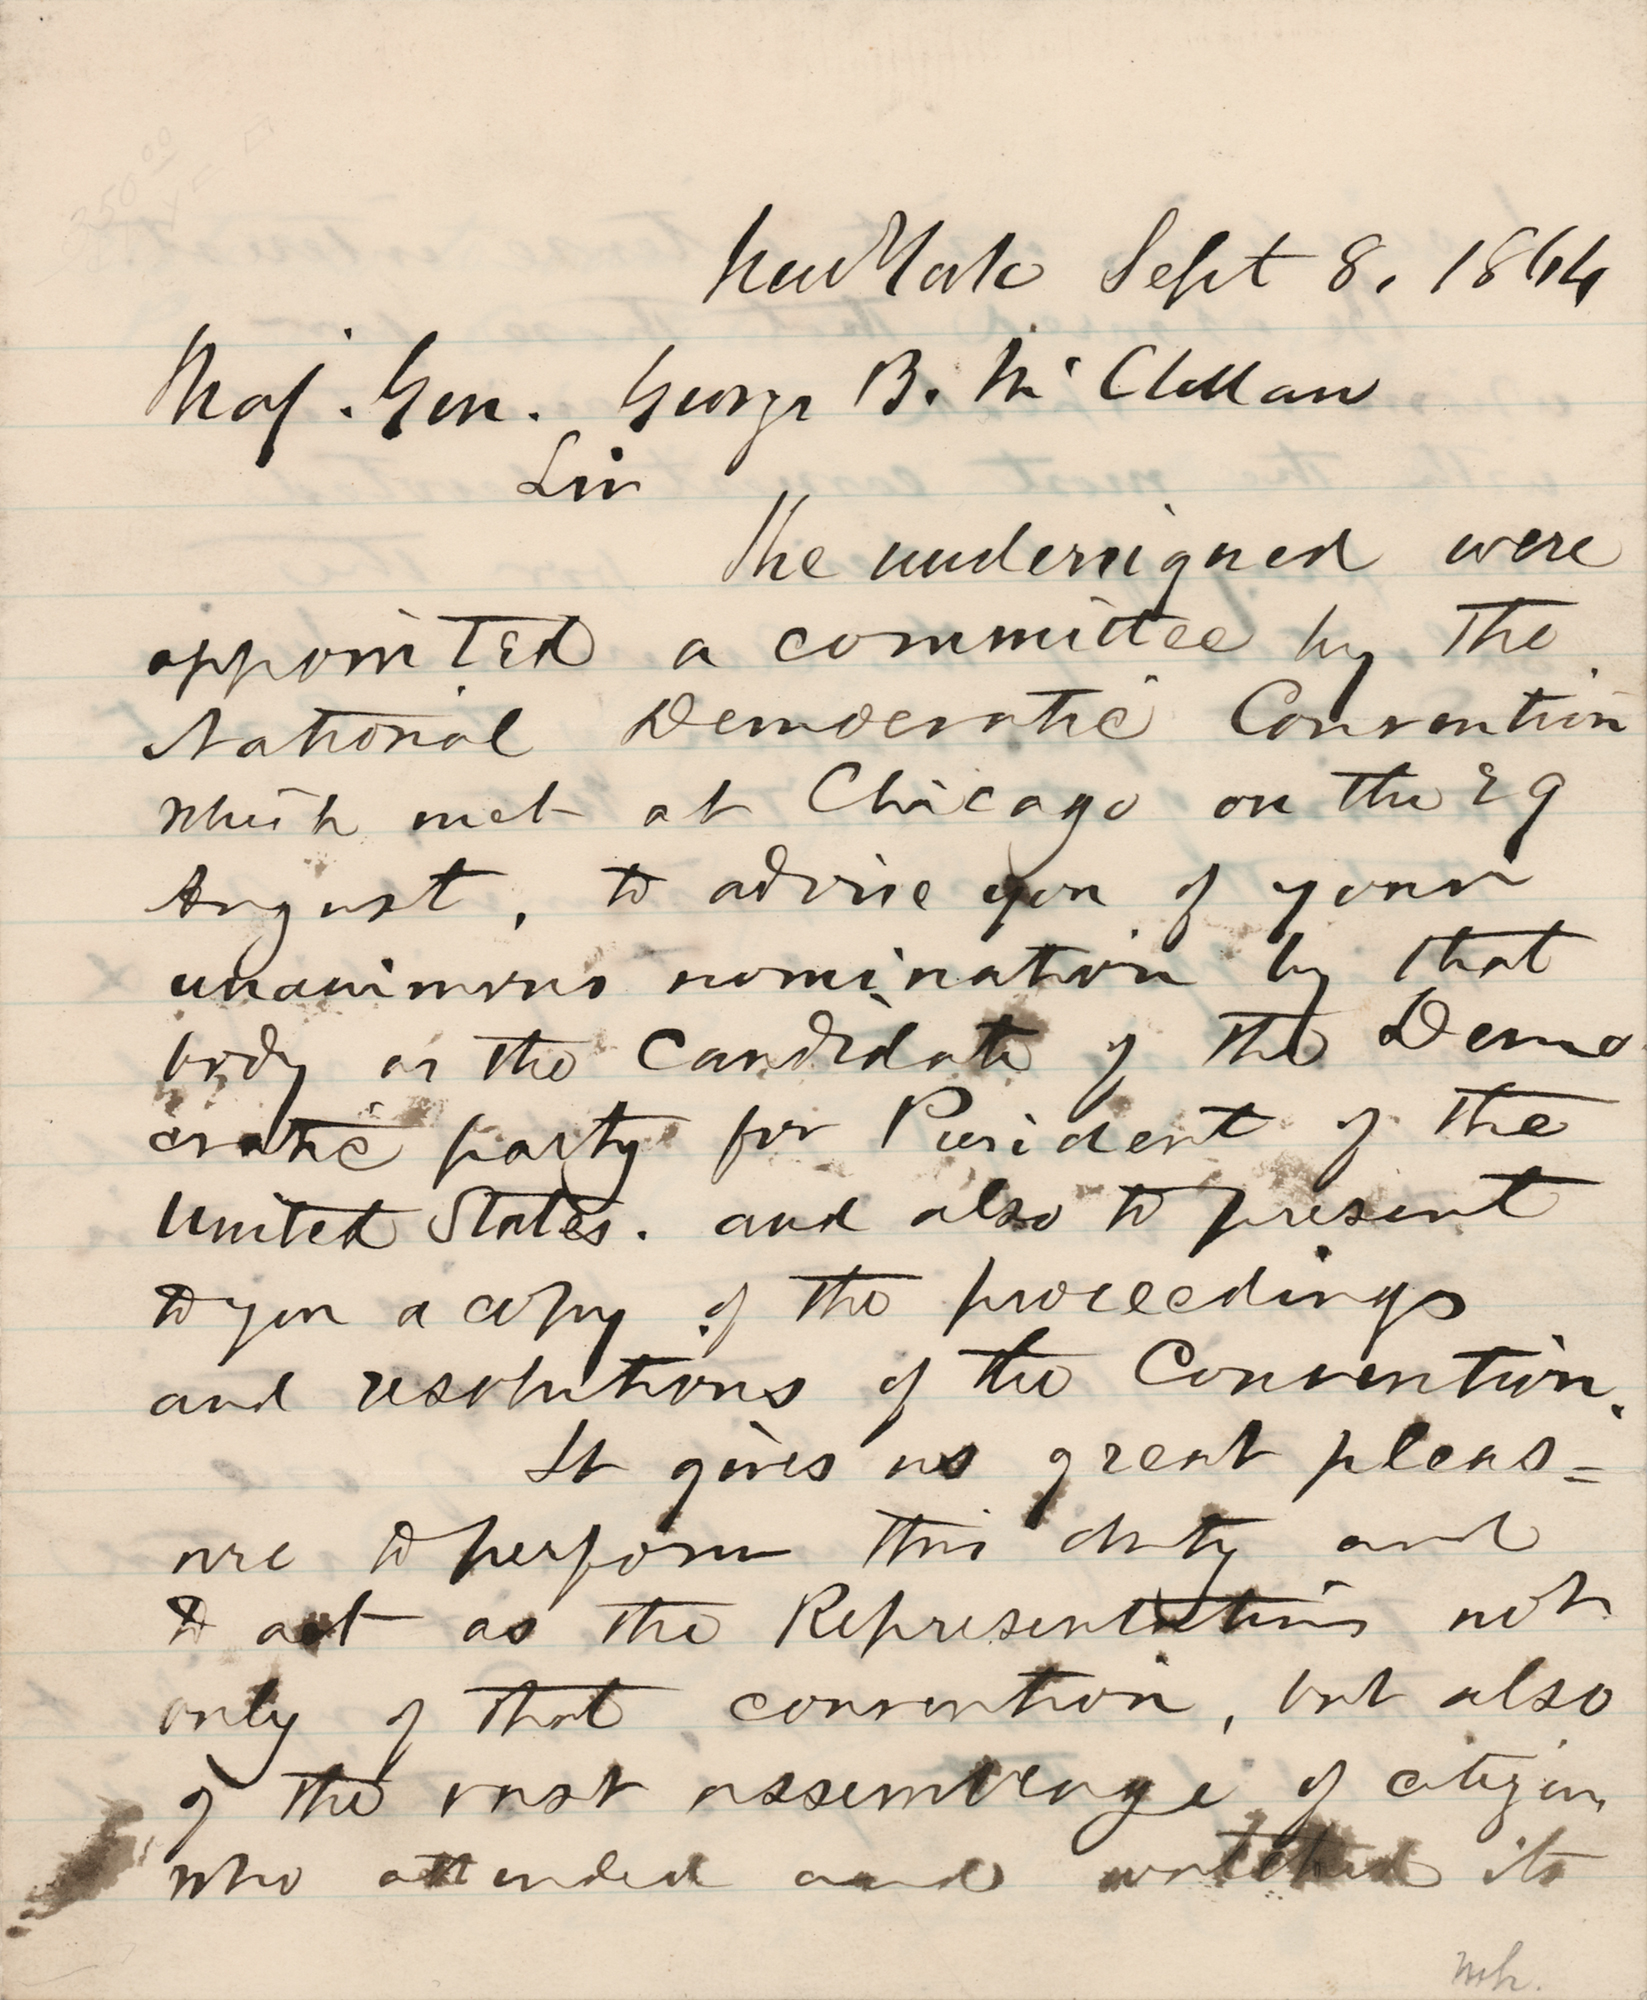 New York Sept 8, 1864
Maj. Gen. George B. McClellan
Sir
The undersigned were
appointed a committee by the
National Democratic Convention
which met at Chicago on the 29
August, to advise you of your
unanimous nomination by that
body as the candidate of the Demo
cratic party for President of the
United States. and also to present
to you a copy of the proceedings
and resolutions of the Convention.
It gives us great pleas=
ure to perform this duty and
to act as the Representatives not
only of that convention, but also
of the vast assemblage of citizens
who attended and watched its